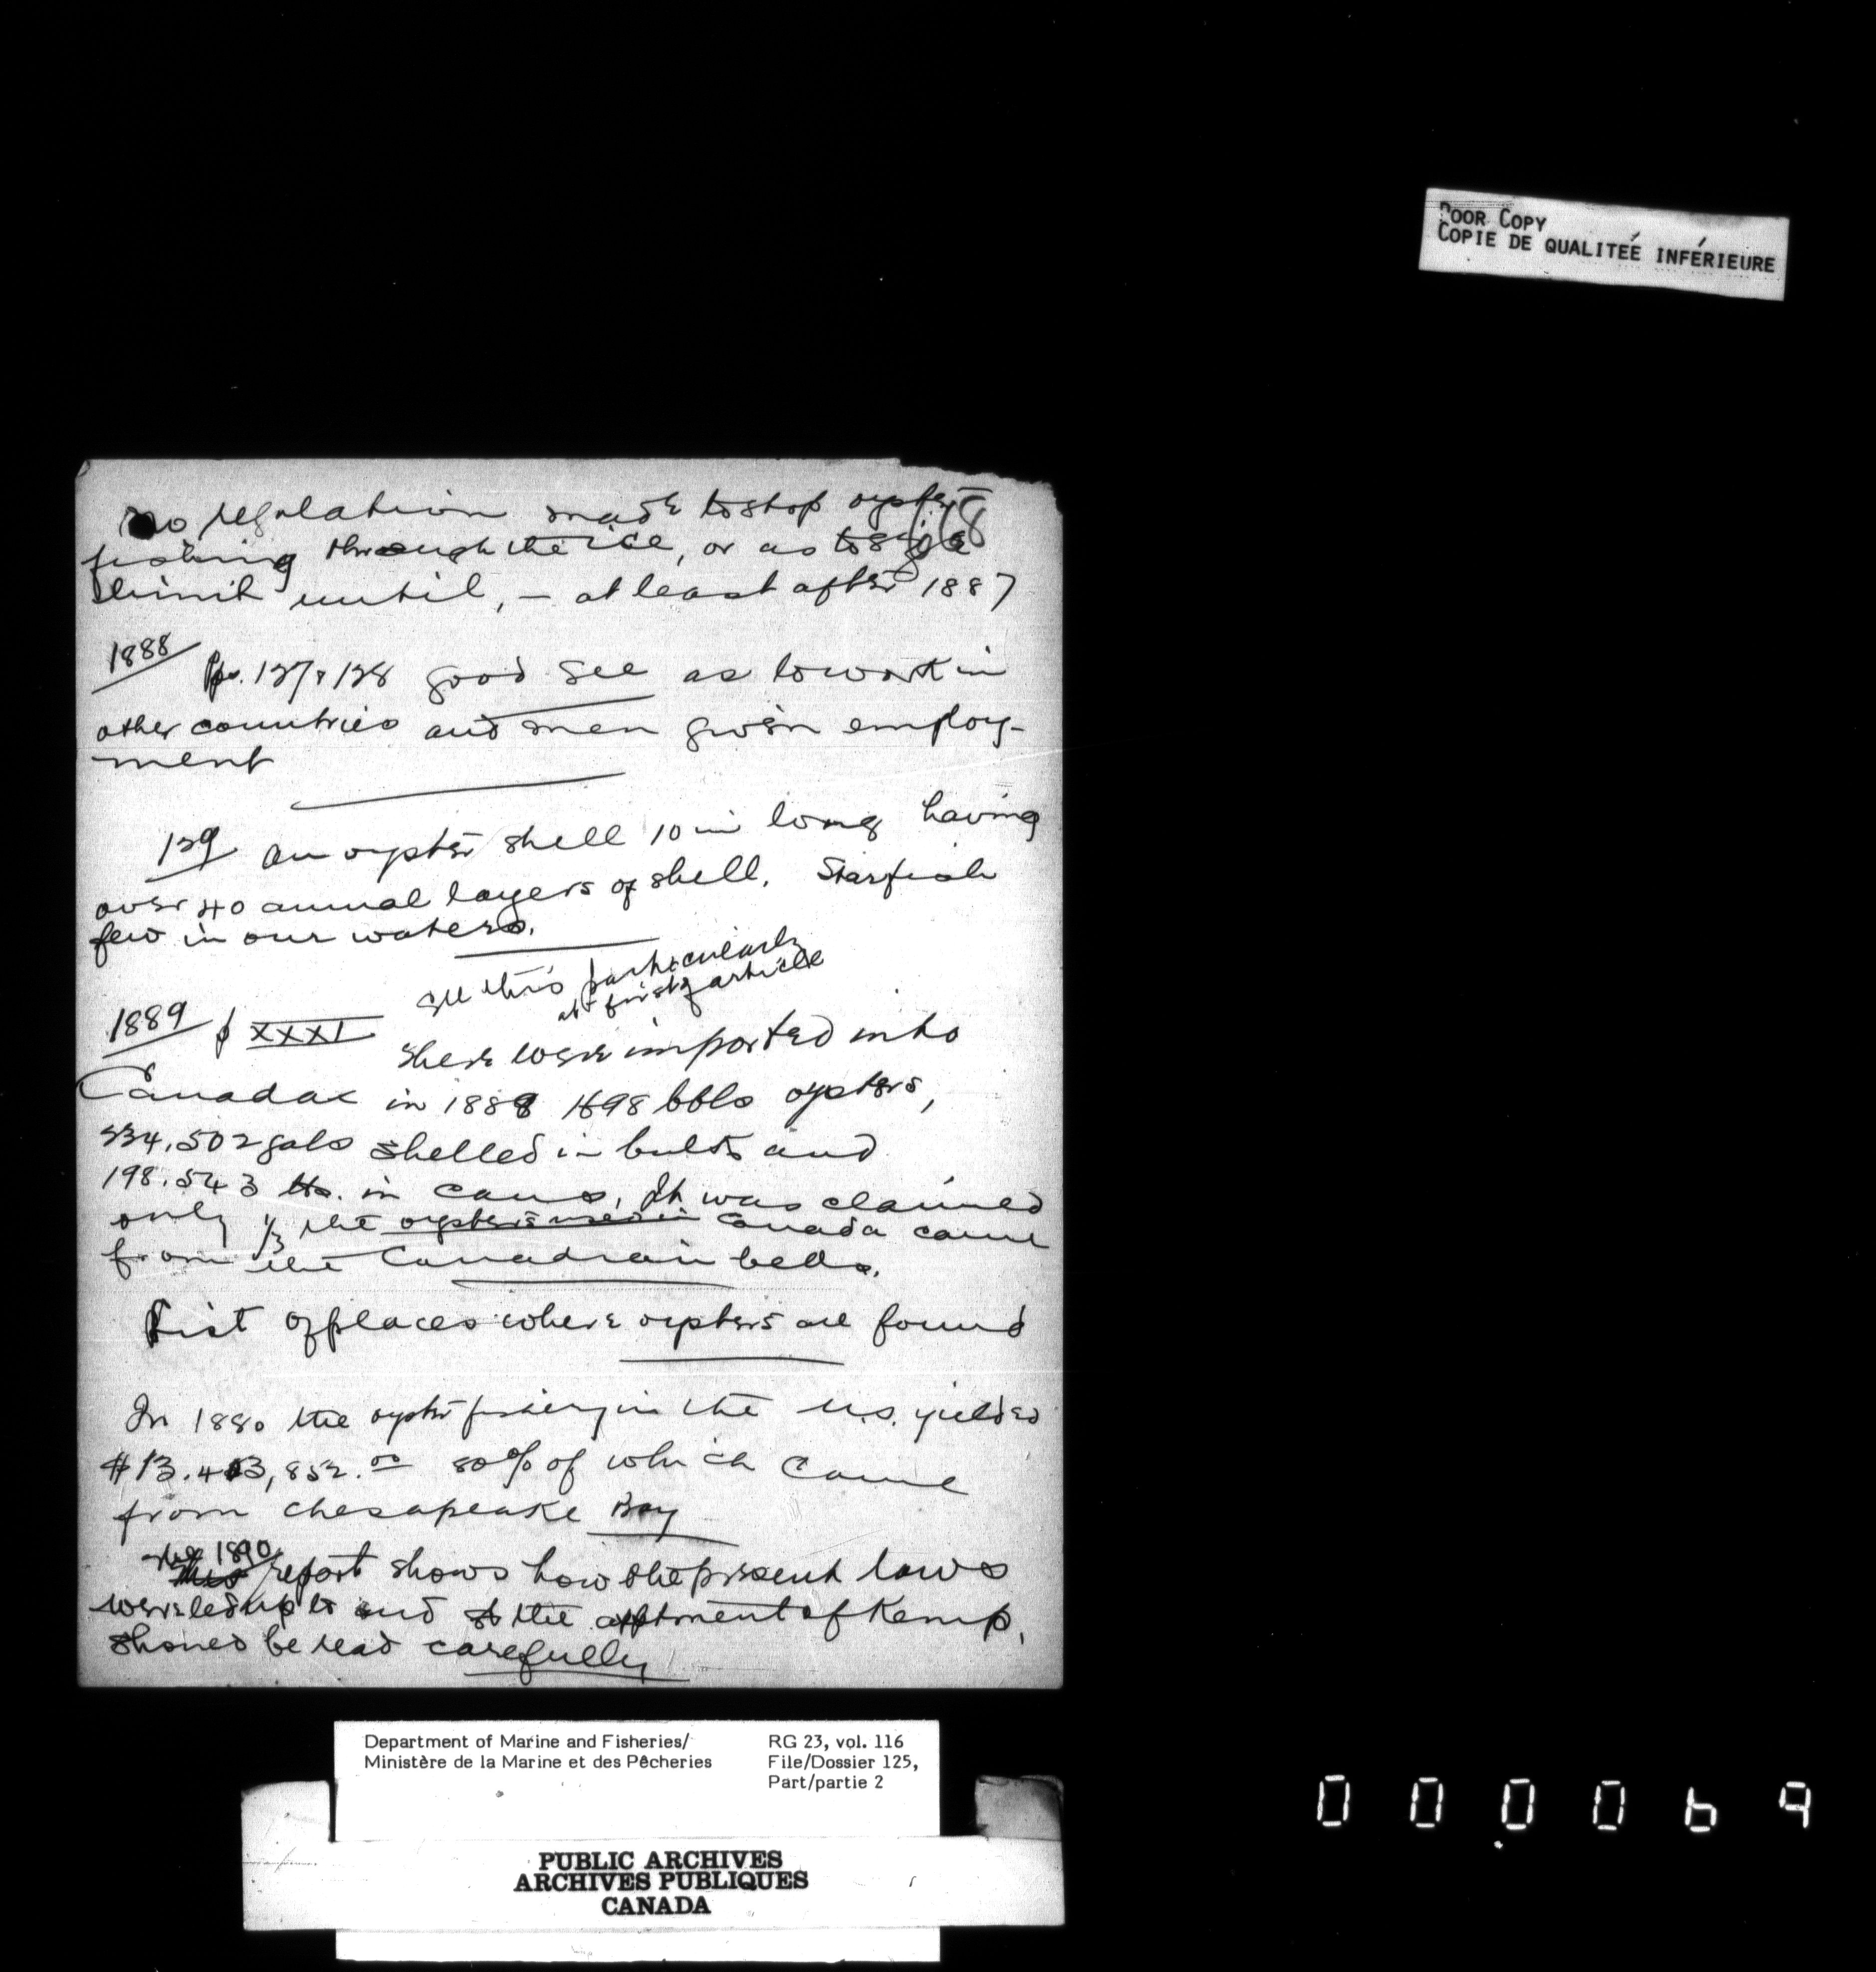 POOR COPY
COPIE DE QUALITEÉ INFÉRIEURE
68
No regulation made to stop oyster
fishing through the ice, or as to size
limit until, - at least after 1887
1888 Pps. 127 & 128 good see as to work in
other countries and men given employ-
ment
129 an oyster shell 10 in long having
over 40 annual layers of shell. Starfish
few in our waters.
see this particularly
at first of article
1889 p XXXI There were imported into
Canada in 1889 1698 bbls oysters,
334.502 gals shelled in bulk and
198.543 lbs. in cans. It was claimed
only 1/3 the oysters used in Canada came
from the Canadian beds.
List of places where oysters are found
In 1880 the oyster fishery in the U.S. yielded
$13.403,852.00 80% of which came
from Chesapeake Bay
The 1890 report shows how the present laws
were led up to and to the apptment of Kemp,
should be read carefully
Department of Marine and Fisheries/
Ministère de la Marine et des Pêcheries
RG 23, vol. 116
File/Dossier 125,
Part/partie 2
PUBLIC ARCHIVES
ARCHIVES PUBLIQUES
CANADA
000069